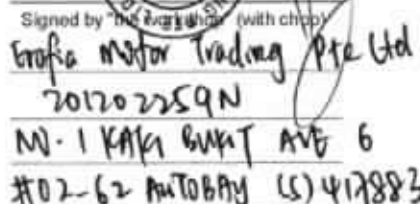 Signed by "the workshop" (with chop)
Erofia Motor Trading Pte Ltd
201202259N
NO. 1 KAKI BUKIT AVE 6
#02-62 AUTOBAY (S) 417883